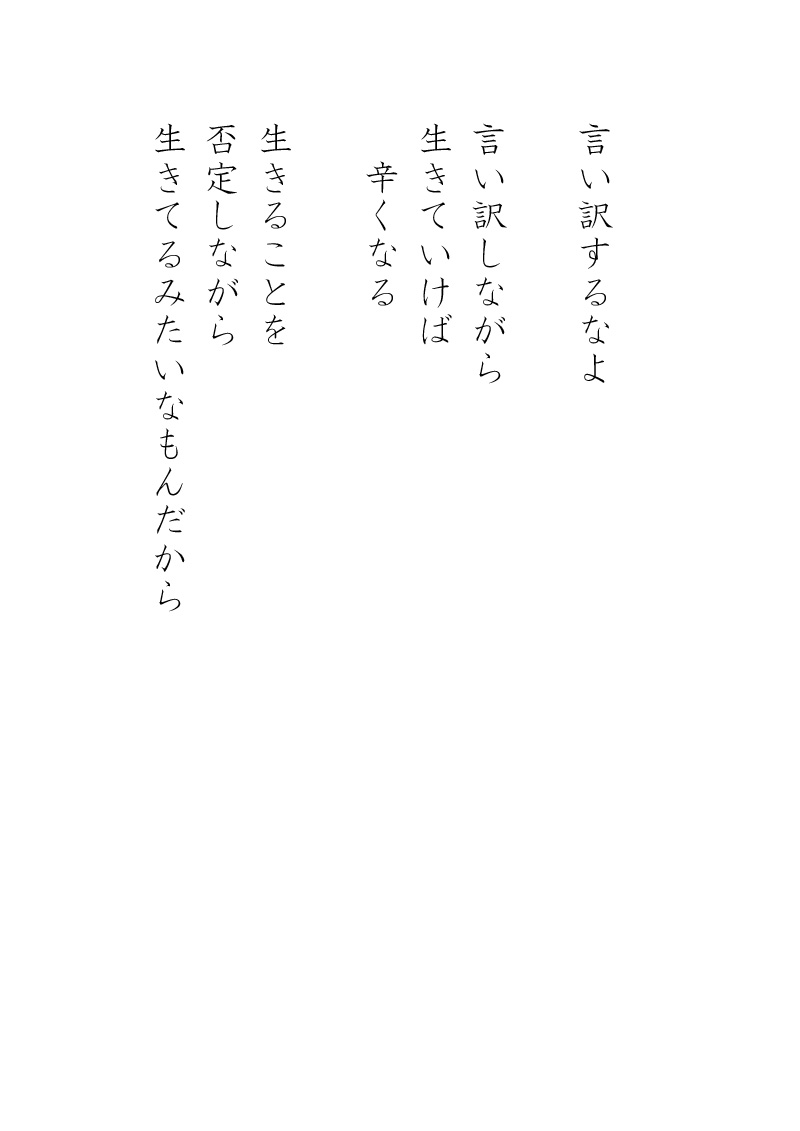 言い訳するなよ
言い訳しながら
生きていけば
辛くなる
生きることを
否定しながら
生きてるみたいなもんだから